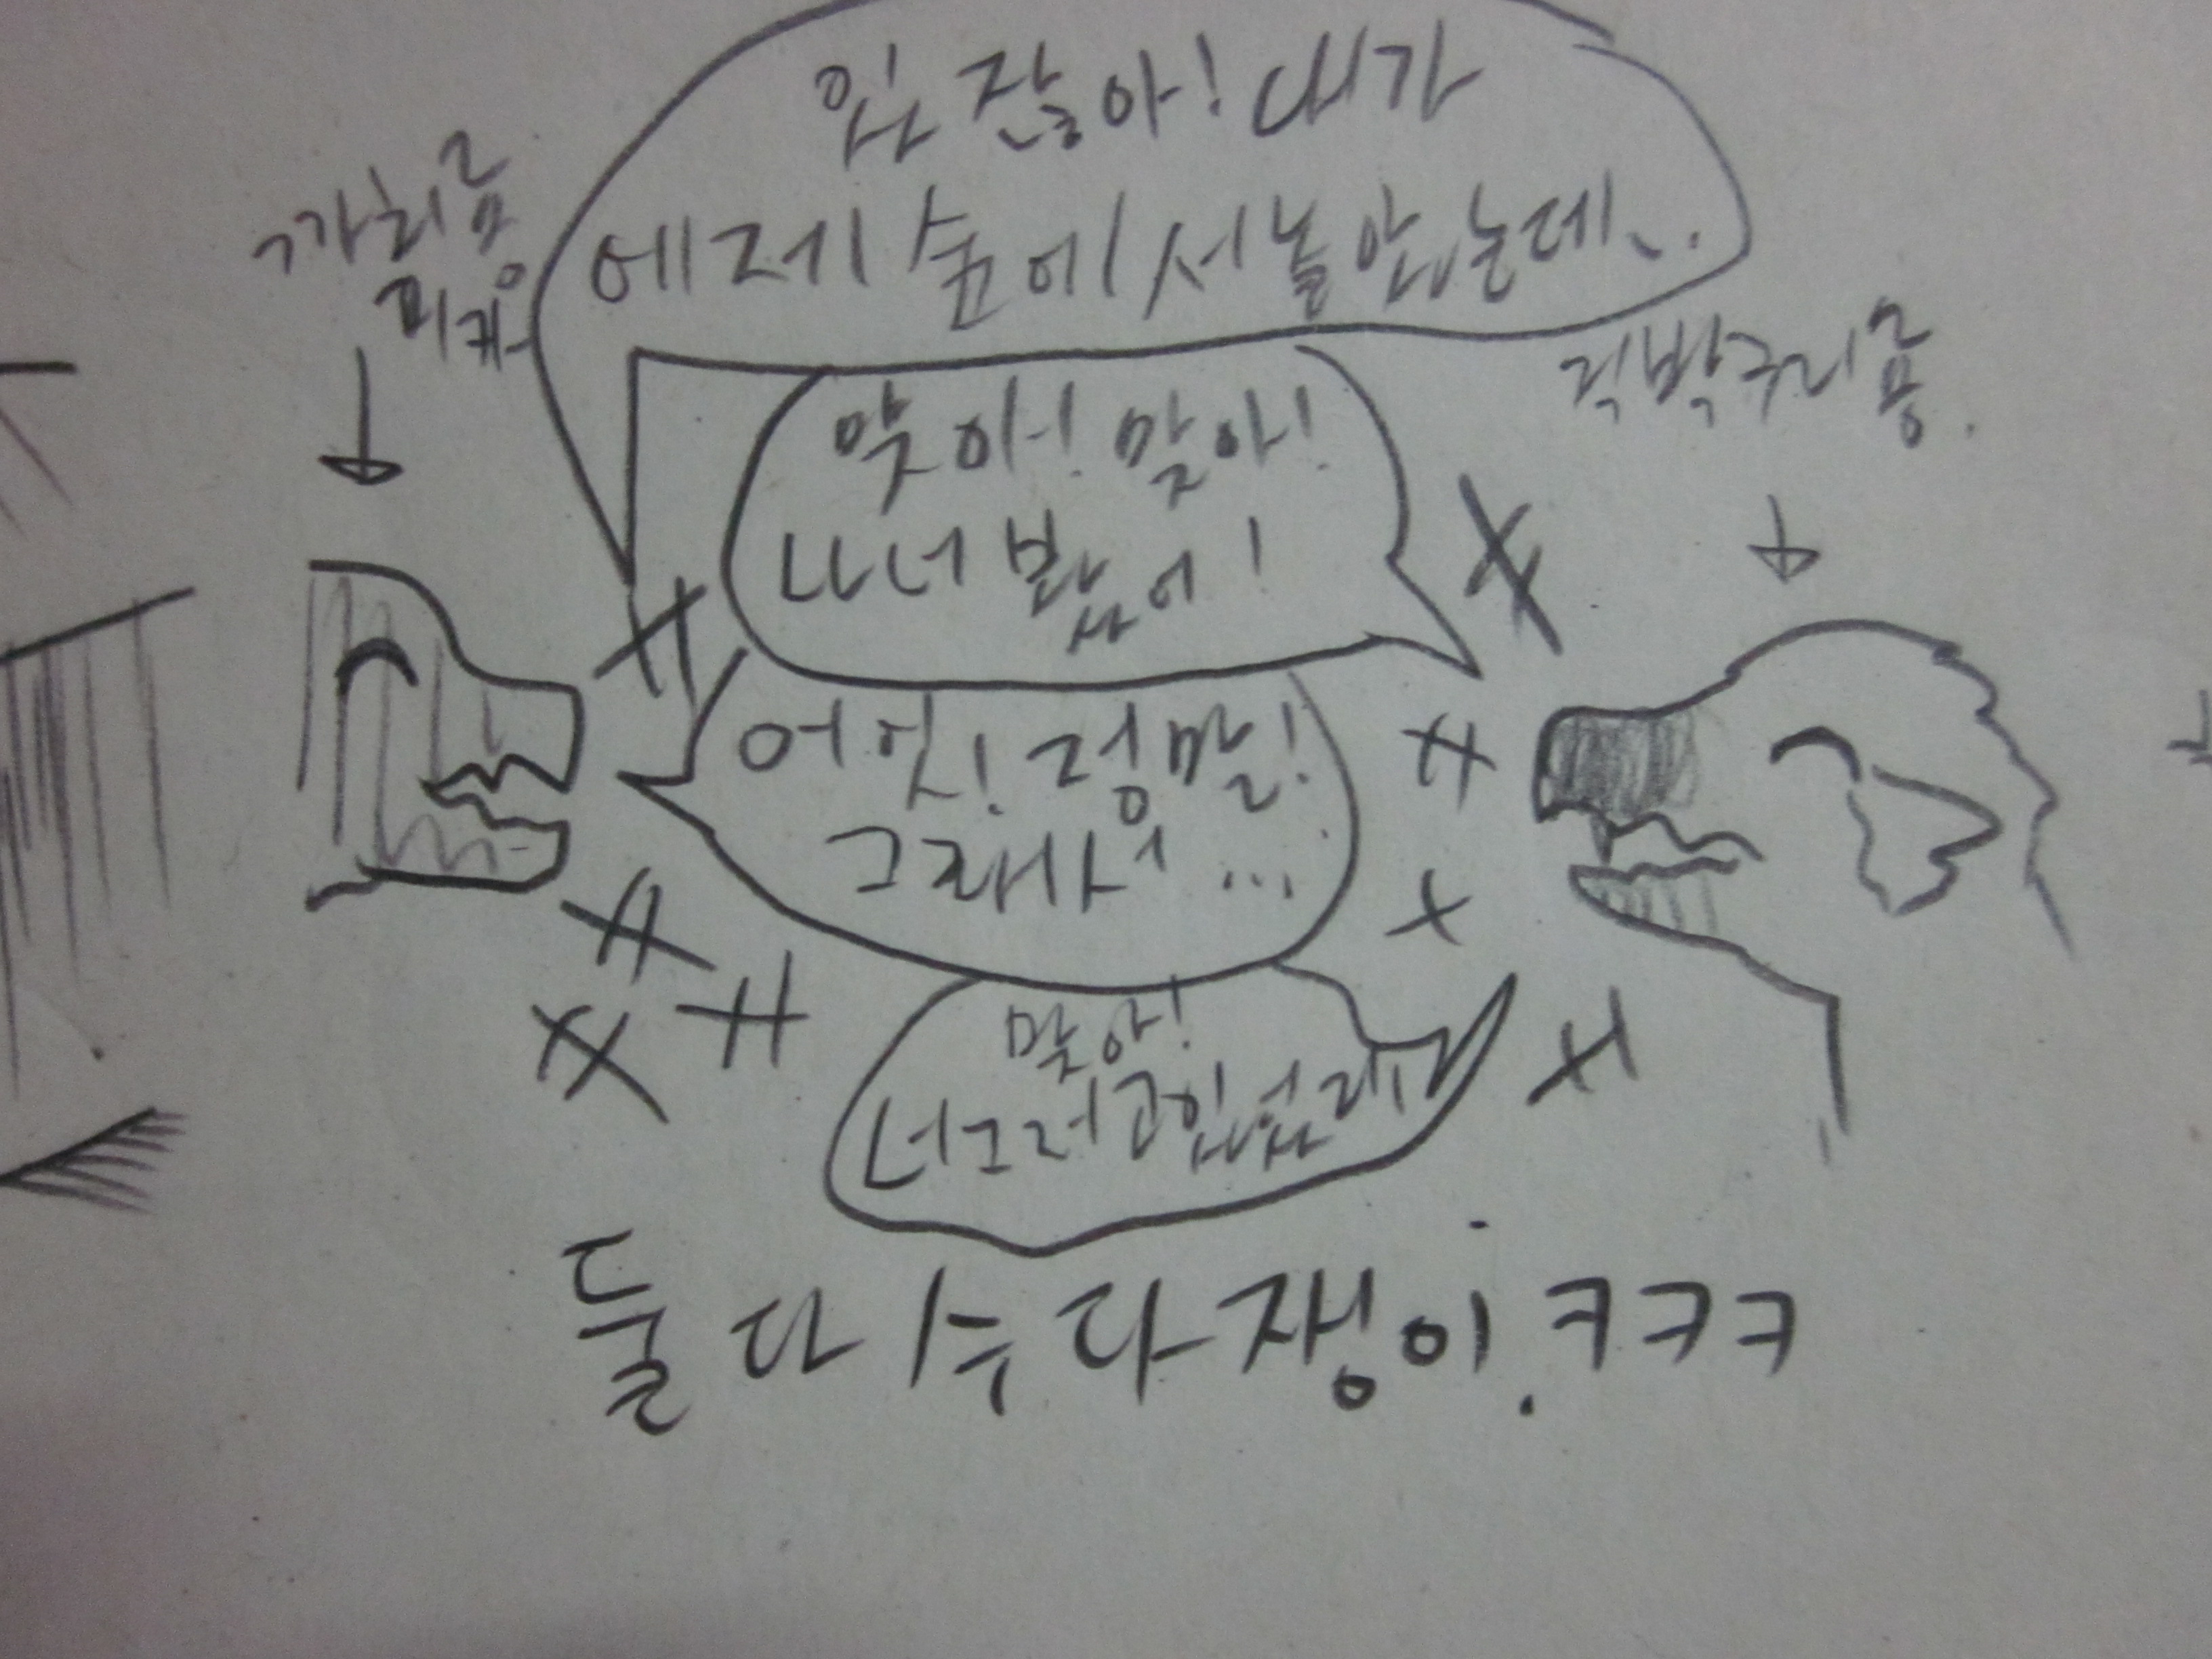 있잖아! 내가
에제 숲에서 놀았는데...
까치룡
피케
직박구리룡.
맞아! 맞아!
나 너 봤어!
어엇! 정말!
그래서...
맞아!
너 그러고 있었
둘 다 수다쟁이. ㅋㅋㅋ